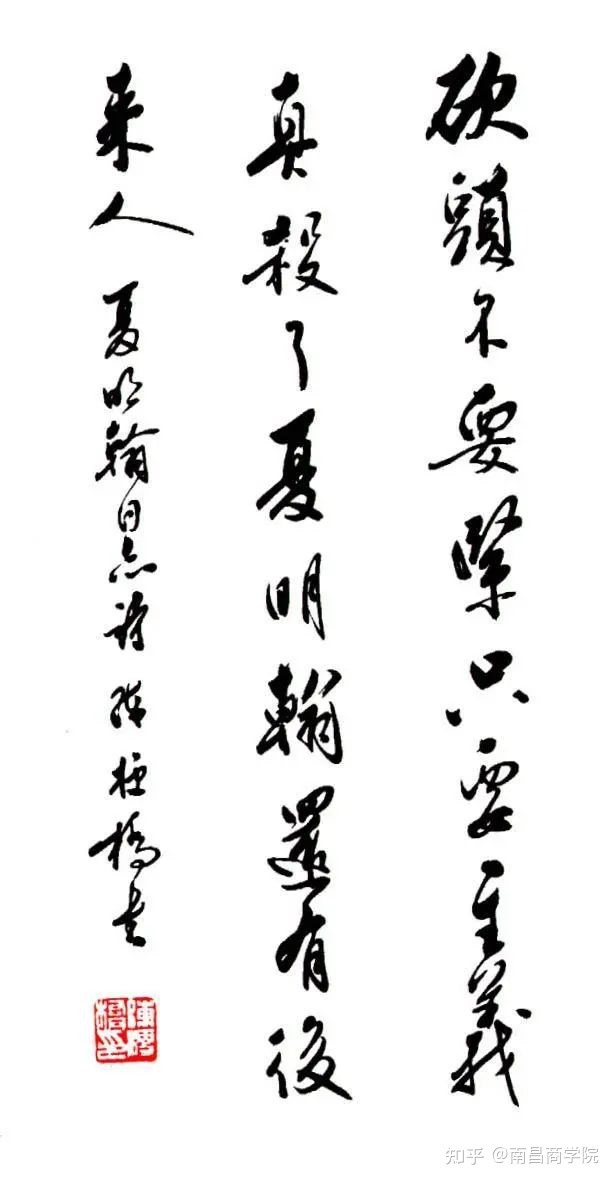 砍頭不要緊只要主義
真殺了夏明翰還有後
来人 夏明翰同志詩 陳橋書
知乎 @南昌商学院